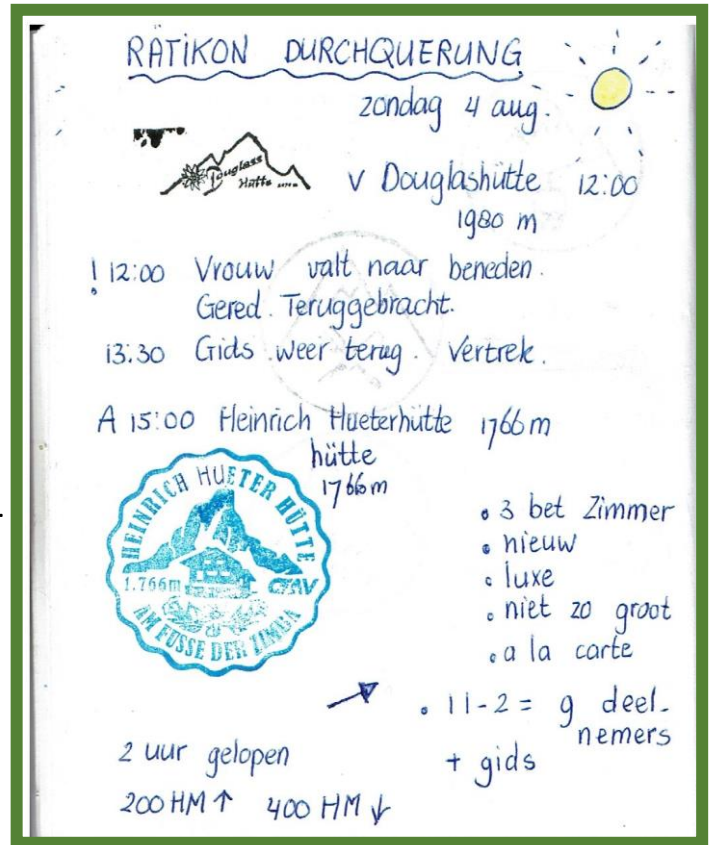 RATIKON DURCHQUERUNG
zondag 4 aug.
Douglass
Hütte
V Douglashütte 12:00
1980 m
! 12:00 Vrouw valt naar beneden.
Gered. Teruggebracht.
13:30 Gids weer terug. Vertrek.
A 15:00 Heinrich Hueterhütte 1766m
hütte
1766m
HEINRICH HUETER HÜTTE
1.766m OEAV
AM FUSSE DER ZIMBA
• 3 bet Zimmer
• nieuw
• luxe
• niet zo groot
• a la carte
• 11-2 = 9 deel-
nemers
+ gids
2 uur gelopen
200 HM ↑ 400 HM ↓